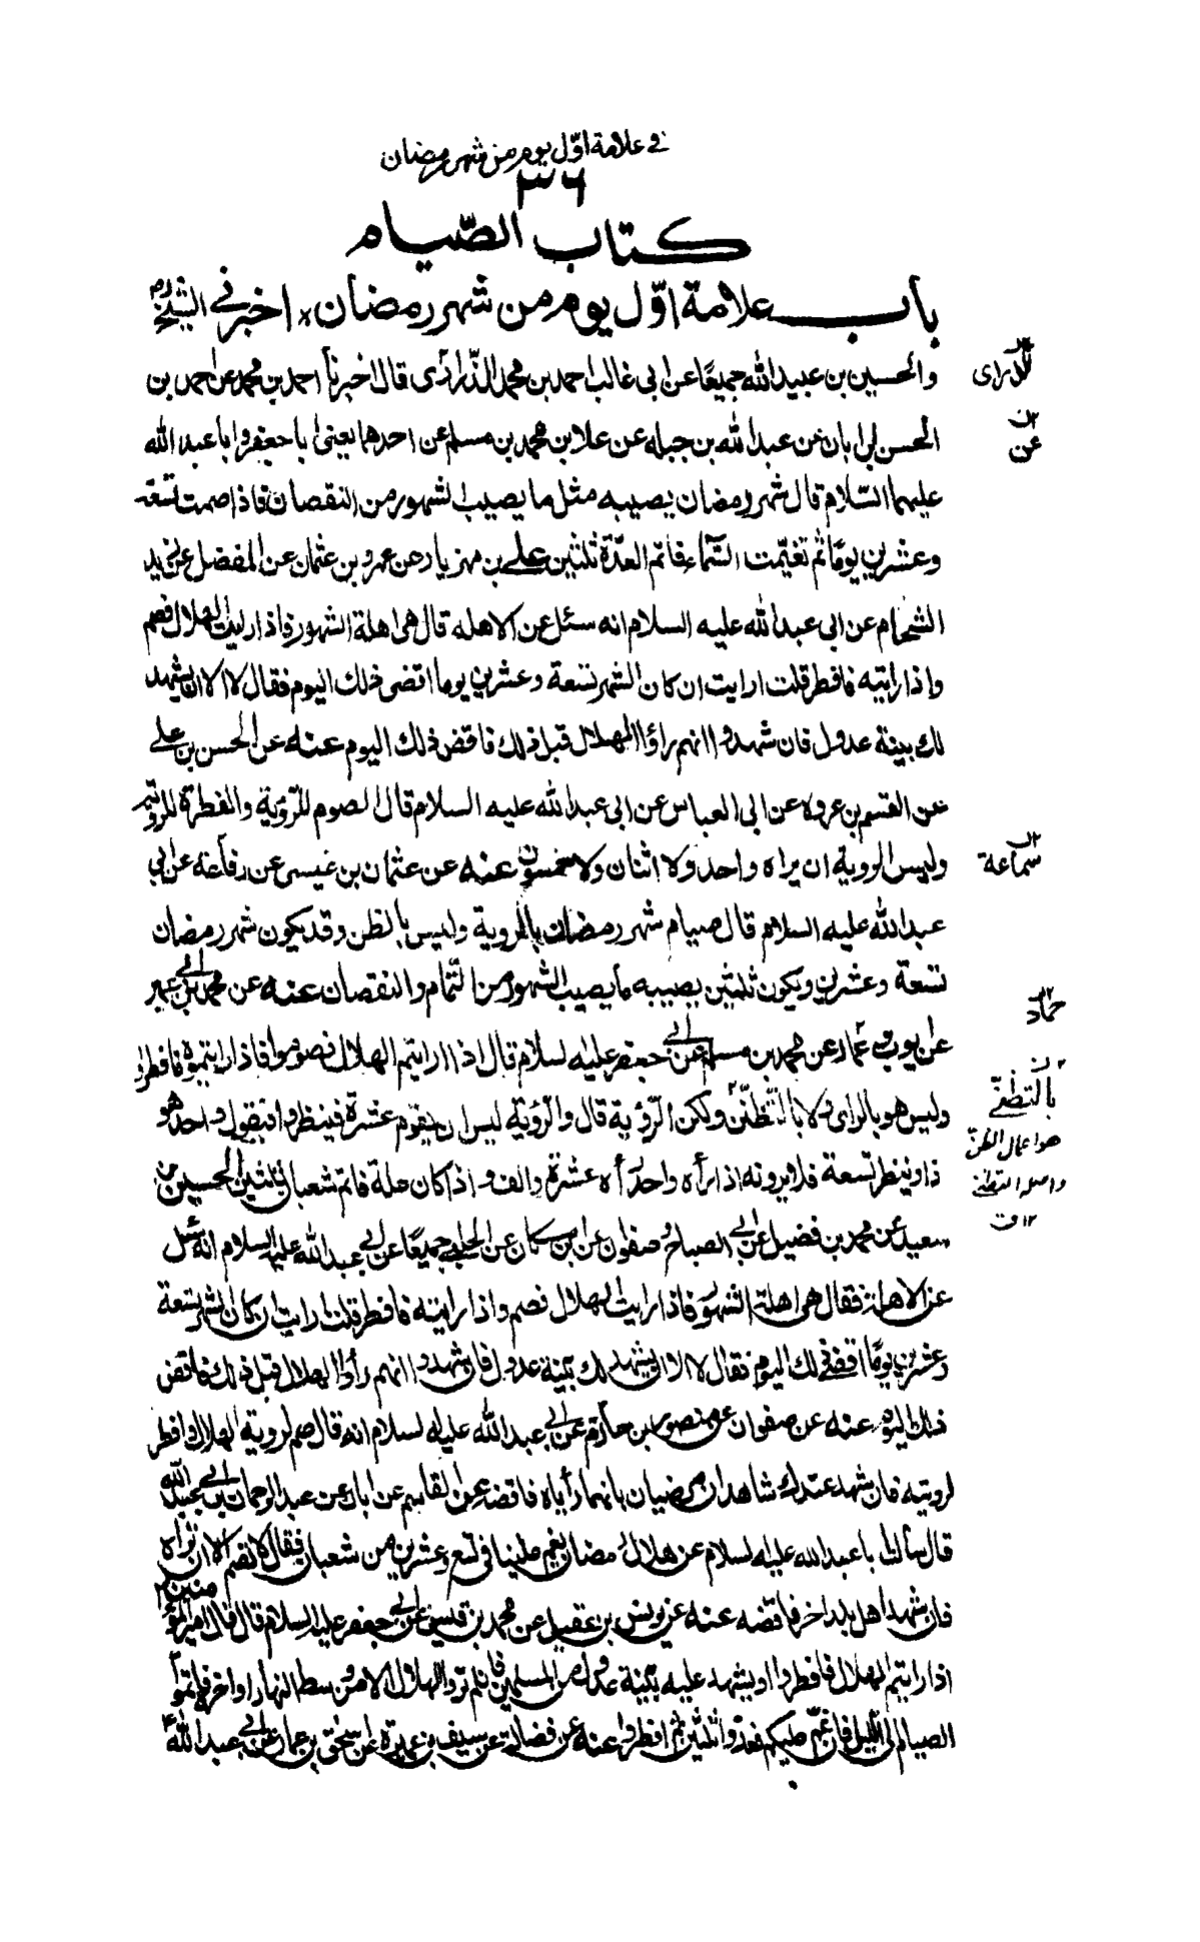 في علامة اوّل يوم من شهر رمضان
٣٦
كتاب الصّيام
باب علامة اوّل يوم من شهر رمضان اخبرني الشيخ ره
والحسين بن عبيد الله جميعًا عن ابي غالب احمد بن محمد الزّراري قال اخبرنا احمد بن محمد عن احمد بن
الحسن بن ابان عن عبد الله بن جبله عن علا بن محمد بن مسلم عن احدهما يعنى ابا جعفر وابا عبد الله
عليهما السّلام قال شهر رمضان يصيبه مثل ما يصيب الشهور من النقصان فاذا صمت تسعة
وعشرين يومًا ثم تغيّمت السّماء فاتم العدّة ثلثين علي بن مهزيار عن عمرو بن عثمان عن المفضل عن زيد
الشحام عن ابي عبد الله عليه السلام انه سئل عن الاهله قال هي اهلة الشهور فاذا رايت الهلال فصم
واذا رايته فافطر قلت ارايت ان كان الشهر تسعة وعشرين يوما اقضى ذلك اليوم فقال لا الا ان يشهد
لك بينة عدول فان شهدوا انهم راؤا الهلال قبل ذلك فاقض ذلك اليوم عنه عن الحسن بن علي
عن القسم بن عروه عن ابي العباس عن ابي عبد الله عليه السلام قال الصوم للرّؤية والفطرة للرؤية
وليس الروية ان يراه واحد ولا اثنان ولا خمسون عنه عن عثمان بن عيسى عن رفاعة عن ابي
عبد الله عليه السلام قال صيام شهر رمضان بالروية وليس بالظن وقد يكون شهر رمضان
تسعة وعشرين ويكون ثلثين يصيبه ما يصيب الشهور من التّمام والنقصان عنه عن محمد بن ابي عمير
عن يوب وعماد عن محمد بن مسلم عن ابي جعفر عليه السلام قال اذا رايتم الهلال فصوموا فاذا رايتموه فافطروا
وليس هو بالراى ولا بالتّظنّن ولكن الرّؤية قال والرّؤية ليس ان يقوم عشرة فينظروا فيقول واحد هو
ذا وينظر تسعة فلا يرونه اذا رأه واحد رأه عشرة والف و اذا كان علة فاتم شعبان ثلثين الحسين بن
سعيد عن محمد بن فضيل عن ابي الصباح و صفوان عن ابن مسكان عن الحلبي جميعًا عن ابي عبد الله عليه السلام انه سئل
عن الاهلة فقال هي اهلة الشهور فاذا رايت الهلال فصم واذا رايته فافطر قلت ارايت ان كان الشهر تسعة
وعشرين يومًا اقضي ذلك اليوم فقال لا الا ان يشهد لك بيّنة عدول فان شهدوا انهم رأوا الهلال قبل ذلك فاقض
ذلك اليوم عنه عن صفوان عن منصور بن حازم عن ابي عبد الله عليه السلام انه قال صم لروية الهلال وافطر
لرويته فان شهد عندك شاهدان مرضيان بانهما رأياه فاقضه عن القاسم عن ابان عن عبد الرحمان بن ابي عبد الله
قال سالت ابا عبد الله عليه السلام عن هلال رمضان يغم علينا في تسع وعشرين من شعبان فقال لا تصم الا ان تراه
فان شهد اهل بلد اخر فاقضه عنه عن يونس بن عقيل عن محمد بن قيس عن ابي جعفر عليه السلام قال قال امير المؤمنين ع
اذا رايتم الهلال فافطروا او يشهد عليه بيّنة عدول من المسلمين فان لم تروا الهلال الا من وسط النهار او اخره فاتموا
الصيام الى الليل فان غمّ عليكم فعدّوا ثلثين ثم افطروا عنه عن فضالة عن سيف بن عميرة عن اسحق بن عمار عن ابي عبد الله ع
الزراري
عن
سماعة
حماد
بالتظنّي
هو اعمال الظنّ
واصله التظنن
١٢ ق